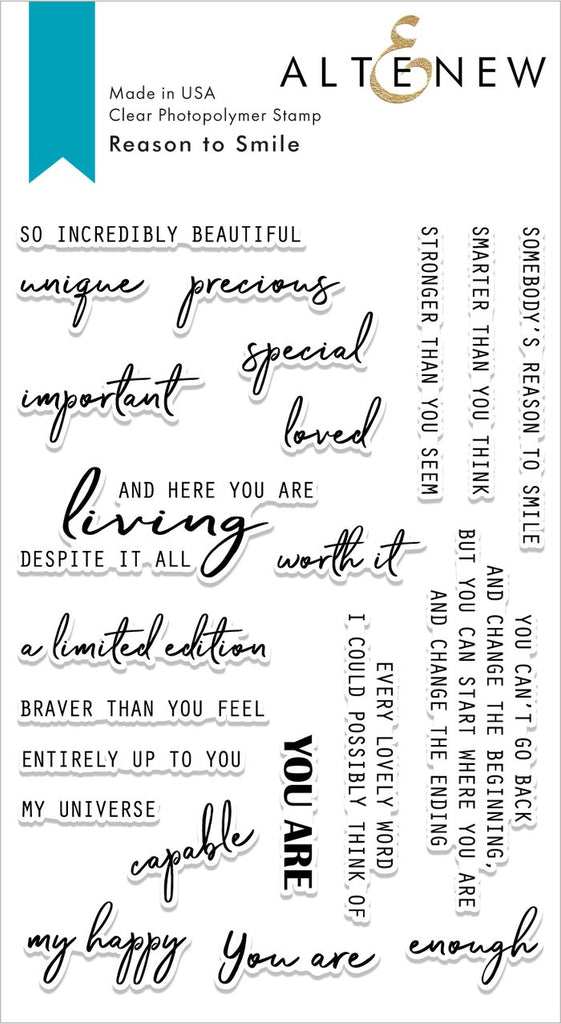 ALTENEW
Made in USA
Clear Photopolymer Stamp
Reason to Smile
SO INCREDIBLY BEAUTIFUL
unique
precious
special
important
loved
AND HERE YOU ARE
living
DESPITE IT ALL
worth it
a limited edition
BRAVER THAN YOU FEEL
ENTIRELY UP TO YOU
MY UNIVERSE
capable
my happy
You are
enough
YOU ARE
EVERY LOVELY WORD
I COULD POSSIBLY THINK OF
STRONGER THAN YOU SEEM
SMARTER THAN YOU THINK
SOMEBODY'S REASON TO SMILE
YOU CAN'T GO BACK
AND CHANGE THE BEGINNING,
BUT YOU CAN START WHERE YOU ARE
AND CHANGE THE ENDING